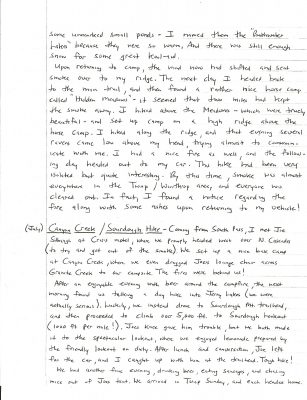 some unmarked small ponds - I named them the "Bathwater
Lakes" because they were so warm, And there was still enough
snow for some great
Upon returning to camp, the wind now had shifted and sent
smoke over to my ridge. The next day I headed back
to the main trail, and then found a rather nice horse camp
called "Hidden Meadows" - it seemed that two miles had kept
the smoke away. I hiked above the Meadows - which were truly
beautiful - and set up camp on a high ridge above the
horse camp. I hiked along the ridge, and that evening several
ravens came low above my head trying almost to commun-
icate with me. I had a nice fire as well, and the follow-
ing day headed out to my car. This hike had been very
isolated but quite interesting. By this time, smoke was almost
everywhere in the Twisp / Winthrop area, and everyone was
cleared out. In fact, I found a notice regarding the
fire along with some notes upon returning to my vehicle!
(July) Canyon Creek / Sourdough Hike - Coming from South Pass, I met Joe
at motel, where we promptly headed over our N Cascades
(to try and get out of the smoke). We set up a nice base camp
at Canyon Creek, where we even dragged Joe's lounge chair across
Granite Creek to our campsite. The fires were behind us!
After an enjoyable evening with beer around the campfire, the next
morning found us talking a day hike into Jerry Lakes (we were
initially serious). Luckily, we instead drove to Sourdough Mtn. trailhead,
and then proceeded to climb over 5,000 ft. to Sourdough lookout
(1000 ft per mile!). Joe's knee gave him trouble, but we both made
it to the spectacular lookout, where we enjoyed lemonade prepared by
the friendly lookout on duty. After lunch and conversation, Joe left
for the car, and I caught up with him at the trailhead. Tough hike!
We had another fine evening, drinking beer, eating sausages, and chasing
mice out of Joe's tent. We arrived in Twisp Sunday, and each headed home.